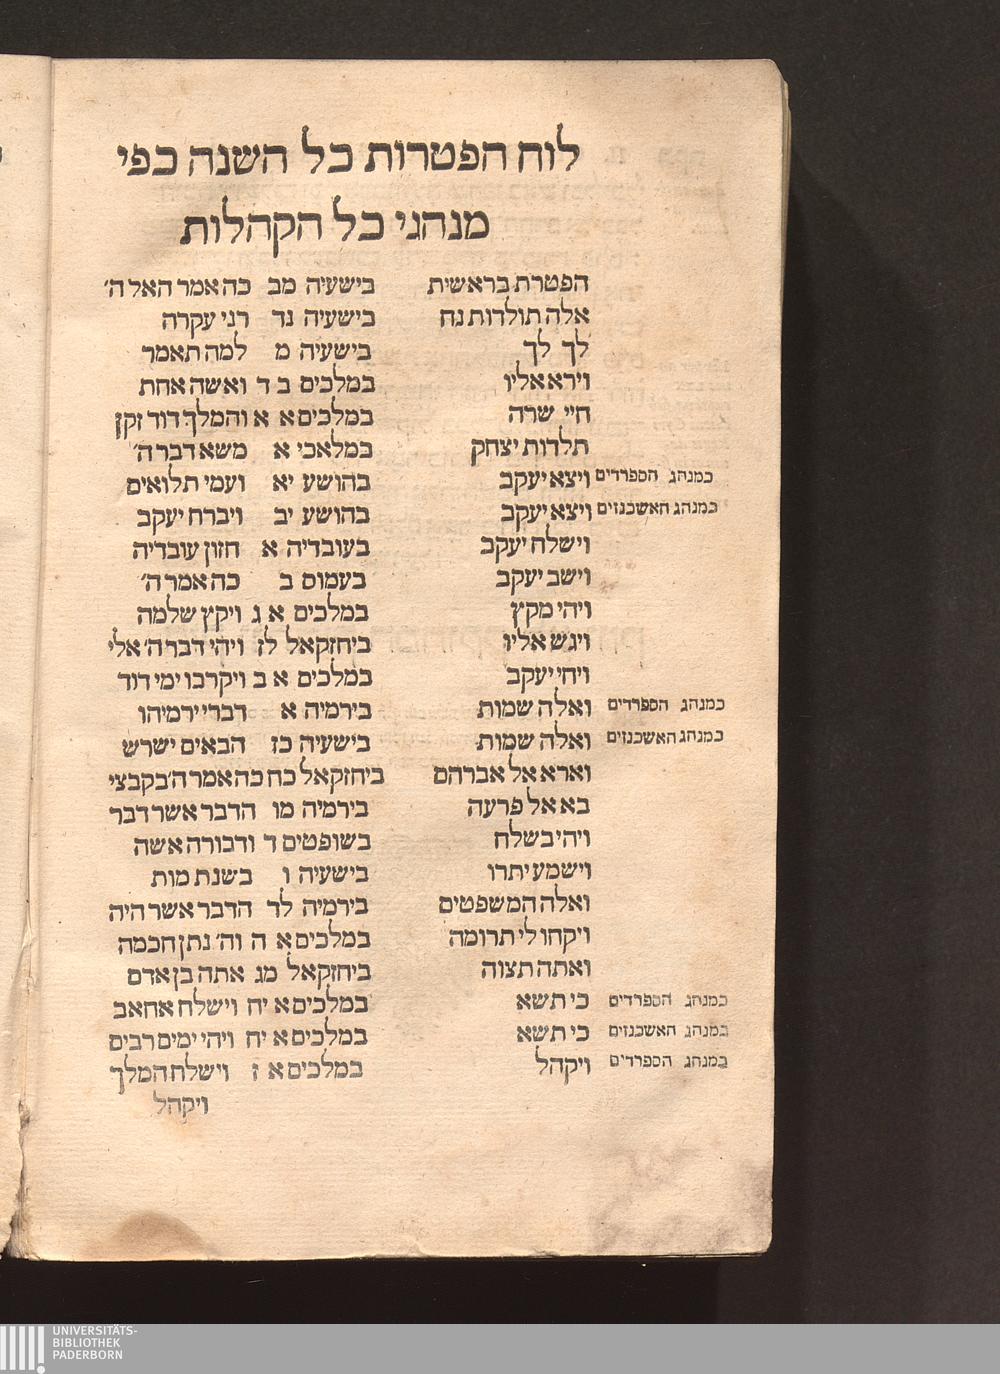 לוח הפטרות כל השנה כפי
מנהגי כל הקהלות
הפטרת בראשית בישעיה מב כה אמר האל ה׳
אלה תולדות נח בישעיה נד רני עקרה
לך לך בישעיה מ למה תאמר
וירא אליו במלכים ב ד ואשה אחת
חיי שרה במלכים א א והמלך דוד זקן
תלדות יצחק במלאכי א משא דבר ה׳
כמנהג הספרדים ויצא יעקב בהושע יא ועמי תלואים
כמנהג האשכנזים ויצא יעקב בהושע יב ויברח יעקב
וישלח יעקב בעובדיה א חזון עובדיה
וישב יעקב בעמוס ב כה אמר ה׳
ויהי מקץ במלכים א ג ויקץ שלמה
ויגש אליו ביחזקאל לז ויהי דבר ה׳ אלי
ויחי יעקב במלכים א ב ויקרבו ימי דוד
כמנהג הספרדים ואלה שמות בירמיה א דברי ירמיהו
כמנהג האשכנזים ואלה שמות בישעיה כז הבאים ישרש
וארא אל אברהם ביחזקאל כח כה אמר ה׳ בקבצי
בא אל פרעה בירמיה מו הדבר אשר דבר
ויהי בשלח בשופטים ד ודבורה אשה
וישמע יתרו בישעיה ו בשנת מות
ואלה המשפטים בירמיה לד הדבר אשר היה
ויקחו לי תרומה במלכים א ה וה׳ נתן חכמה
ואתה תצוה ביחזקאל מג אתה בן אדם
כמנהג הספרדים כי תשא במלכים א יח וישלח אחאב
במנהג האשכנזים כי תשא במלכים א יח ויהי ימים רבים
במנהג הספרדים ויקהל במלכים א ז וישלח המלך
ויקהל
UNIVERSITÄTS-
BIBLIOTHEK
PADERBORN